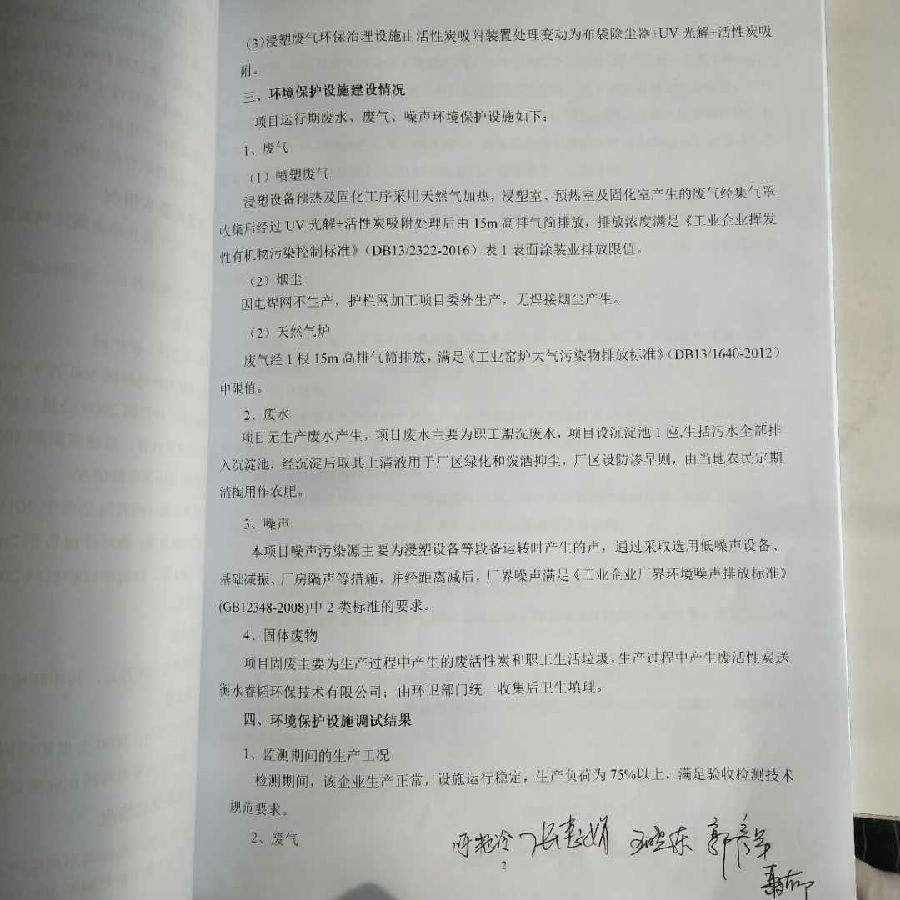 (3)浸塑废气环保治理设施由活性炭吸附装置处理变动为布袋除尘器+UV 光解+活性炭吸
附。
三、环境保护设施建设情况
项目运行期废水、废气、噪声环境保护设施如下：
1、废气
（1）喷塑废气
浸塑设备预热及固化工序采用天然气加热，浸塑室、预热室及固化室产生的废气经集气罩
收集后经过 UV 光解+活性炭吸附处理后由 15m 高排气筒排放，排放浓度满足《工业企业挥发
性有机物污染控制标准》（DB13/2322-2016）表 1 表面涂装业排放限值。
（2）烟尘
因电焊网不生产，护栏网加工项目委外生产，无焊接烟尘产生。
（2）天然气炉
废气经 1 根 15m 高排气筒排放，满足《工业窑炉大气污染物排放标准》（DB13/1640-2012）
中限值。
2、废水
项目无生产废水产生，项目废水主要为职工盥洗废水，项目设沉淀池 1 座,生活污水全部排
入沉淀池，经沉淀后取其上清液用于厂区绿化和泼洒抑尘，厂区设防渗旱厕，由当地农民定期
清掏用作农肥。
3、噪声
本项目噪声污染源主要为浸塑设备等设备运转时产生的声，通过采取选用低噪声设备、
基础减振、厂房隔声等措施，并经距离减后，厂界噪声满足《工业企业厂界环境噪声排放标准》
(GB12348-2008)中 2 类标准的要求。
4、固体废物
项目固废主要为生产过程中产生的废活性炭和职工生活垃圾,生产过程中产生废活性炭送
衡水睿韬环保技术有限公司；由环卫部门统一收集后卫生填埋。
四、环境保护设施调试结果
1、监测期间的生产工况
检测期间，该企业生产正常，设施运行稳定，生产负荷为 75%以上，满足验收检测技术
规范要求。
2、废气
2